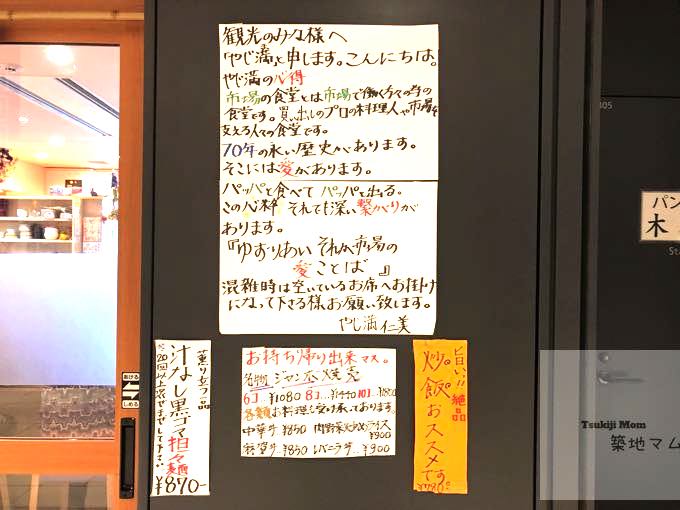 観光のみな様へ
「やじ満」と申します。こんにちは。
やじ満の心得
市場の食堂とは市場で働く方々の為の
食堂です。買い出しのプロの料理人や市場を
支える人々の食堂です。
70年の永い歴史があります。
そこには愛があります。
パッパと食べてパッパと出る。
この心粋 それでも深い繋がりが
あります。
『ゆずりあい それが市場の
愛ことば』
混雑時は空いているお席へお掛け
になって下さる様お願い致します。
やじ満 仁美
薫り立つ一品
汁なし黒ゴマ担々麺
※20回以上混ぜまぜして下さい
¥870-
お持ち帰り出来マス。
名物 ジャンボ焼売
6コ…¥1080 8コ…¥1440 10コ…¥1800
各種お料理も受け承っております。
中華丼…¥850 肉野菜いためライス
¥900
¥850 レバニラ丼…¥900
旨い!!絶品
炒飯おススメです
¥780-
あける
しめる
805
パン
木
Tsukiji Mom
築地マム